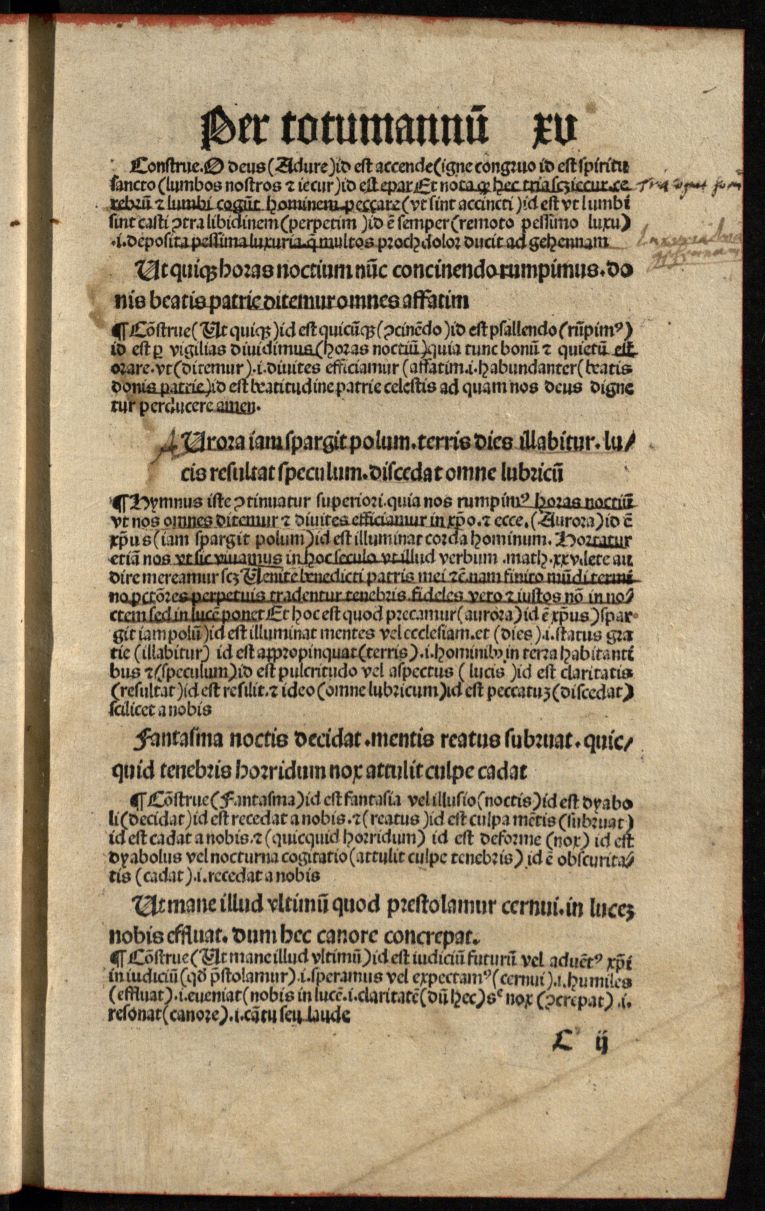 Per totumannū xv
Construe.O deus (Adure)id est accende(igne congruo id est spiritu
sancto (lumbos nostros ⁊ iecur)id est epar Et nota ꝙ hec tria scꝫ iecur.ce
rebrū ⁊ lumbi cogūt hominem peccare(vt sint accincti )id est vt lumbi
sint casti ↄtra libidinem(perpetim )id ē semper(remoto pessimo luxu)
.i.deposita pessima luxuria.q̄ multos proch dolor ducit ad gehennam
Ut quiqꝫ horas noctium nūc concinendo rumpimus.do
nis beatis patrie ditemur omnes affatim
¶Cōstrue(Ut quiqꝫ)id est quicūqꝫ(ↄcinēdo)id est psallendo(rūpimꝰ)
id est ꝑ vigilias diuidimus(horas noctiū)quia tunc bonū ⁊ quietū est
orare.vt(ditemur).i.diuites efficiamur(affatim.i.habundanter(beatis
donis patrie)id est beatitudine patrie celestis ad quam nos deus digne
tur perducere amen.
AUrora iam spargit polum.terris dies illabitur.lu/
cis resultat speculum.discedat omne lubricū
¶Hymnus iste ↄtinuatur superiori.quia nos rumpimꝰ horas noctiū
vt nos omnes ditemur ⁊ diuites efficiamur in xp̄o.⁊ ecce.(Aurora)id ē
xp̄us(iam spargit polum)id est illuminat corda hominum. Hortatur
etiā nos vt sic viuamus in hoc seculo vt illud verbum .math.xxv.lete au
dire mereamur scꝫ Uenite benedicti patris mei ⁊cͤ.nam finito mūdi termi
no pctōres perpetuis tradentur tenebris.fideles vero ⁊ iustos nō in no/
ctem sed in lucē ponet Et hoc est quod precamur(aurora)id ē xp̄us)spar
git iam polū)id est illuminat mentes vel ecclesiam.et (dies).i.status gra
tie (illabitur) id est appropinquat(terris).i.hominibꝫ in terra habitanti
bus ⁊(speculum)id est pulcritudo vel aspectus ( lucis )id est claritatis
(resultat)id est resilit.⁊ ideo(omne lubricum)id est peccatuꝫ(discedat)
scilicet a nobis
Fantasma noctis decidat .mentis reatus subruat. quic/
quid tenebris horridum nox attulit culpe cadat
¶Cōstrue(Fantasma)id est fantasia vel illusio(noctis)id est dyabo
li(decidat)id est recedat a nobis.⁊(reatus)id est culpa mētis(subruat)
id est cadat a nobis.⁊(quicquid horridum) id est deforme (nox) id est
dyabolus vel nocturna cogitatio(attulit culpe tenebris)id ē obscurita/
tis (cadat).i.recedat a nobis
Ut mane illud vltimū quod prestolamur cernui.in luceꝫ
nobis effluat. dum hec canore concrepat.
¶Cōstrue(Ut mane illud vltimū)id est iudiciū futurū vel aduētꝰ xp̄i
in iudiciū(qd̄ p̄stolamur).i.speramus vel expectamꝰ(cernui).i.humiles
(effluat).i.eueniat(nobis in lucē.i.claritatē(dū hec)sͨ nox (ↄcrepat) .i.
resonat(canore).i.cātu seu laude
C ij